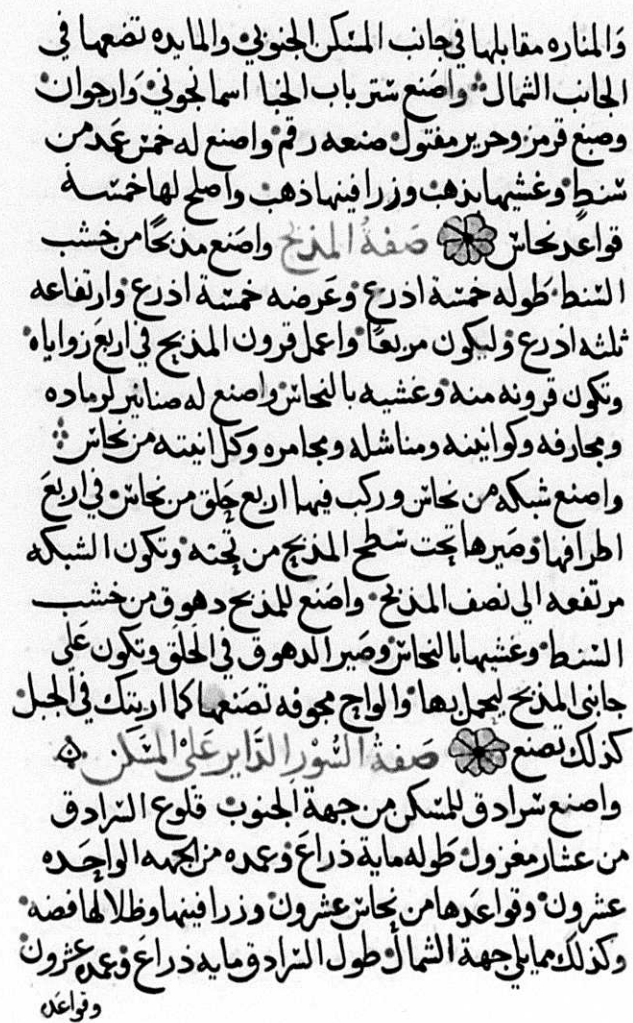 والمناره مقابلها في جانب المسكن الجنوبي والمايده تضعها في
الجانب الشمال واصنع ستر باب الخبا اسمانجوني وارجوان
وصبع قرمز وحرير مفتول صنعه رقم واصنع له خمس عمد من
سنط وغشيها بذهب وزرافينها ذهب واصلح لها خمسة
قواعد نحاس صفة المذبح واصنع مذبحًا من خشب
السنط طوله خمسة اذرع وعرضه خمسة اذرع وارتفاعه
ثلثه اذرع وليكون مربعًا واعمل قرون المذبح في اربع زواياه
وتكون قرونه منه وغشيه بالنحاس واصنع له صنانير لرماده
ومجارفه وكوانينه ومناشله ومجامره وكل انيته من نحاس
واصنع شبكه من نحاس وركب فيها اربع حلق من نحاس في اربع
اطرافها وصيرها تحت سطح المذبح من تحته وتكون الشبكه
مرتفعه الى نصف المذبح واصنع للمذبح دهوق من خشب
السنط وغشيها بالنحاس وصير الدهوق في الحلق وتكون على
جانبي المذبح ليحمل بها والواح مجوفه تصنعها كما اريتك في الجبل
كذلك تصنع صفة السور الداير على المسكن
واصنع سرادق للمسكن من جهة الجنوب قلوع السرادق
من عشار مغزول طوله مايه ذراع وعمده من الجهه الواحده
عشرون وقواعدها من نحاس عشرون وزرافينها وظلالها فضه
وكذلك مما يلي جهة الشمال طول السرادق مايه ذراع وعمده عشرون
وقواعده